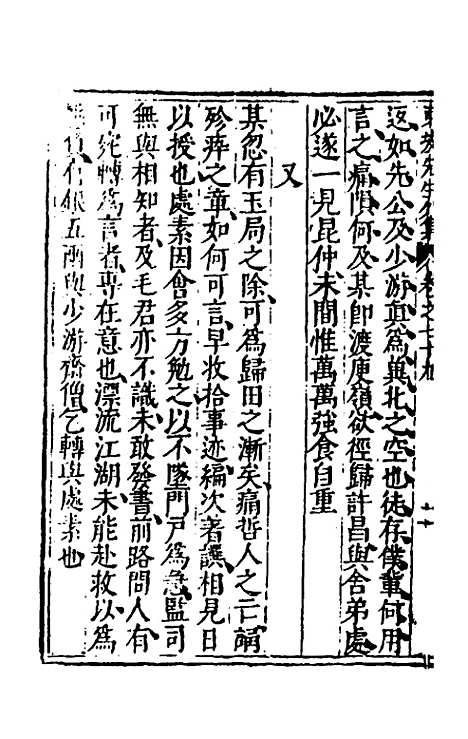 東坡先生全集 卷之七十九
返如先公及少游真爲異北之空也徒存僕輩何用
言之痛隕何及某即渡庾嶺欲徑歸許昌與舍弟處
必遂一見昆仲未間惟萬萬強食自重
又
某忽有玉局之除可爲歸田之漸矣痛哲人之云亡誦
殄瘁之章如何可言早收拾事迹編次著譔相見日
以授也處素因會多方勉之以不墜門戸爲急監司
無與相知者及毛君亦不識未敢發書前路問人有
可宛轉爲言者專在意也漂流江湖未能赴救以爲
銀五兩與少游齋僧乞轉與處素也